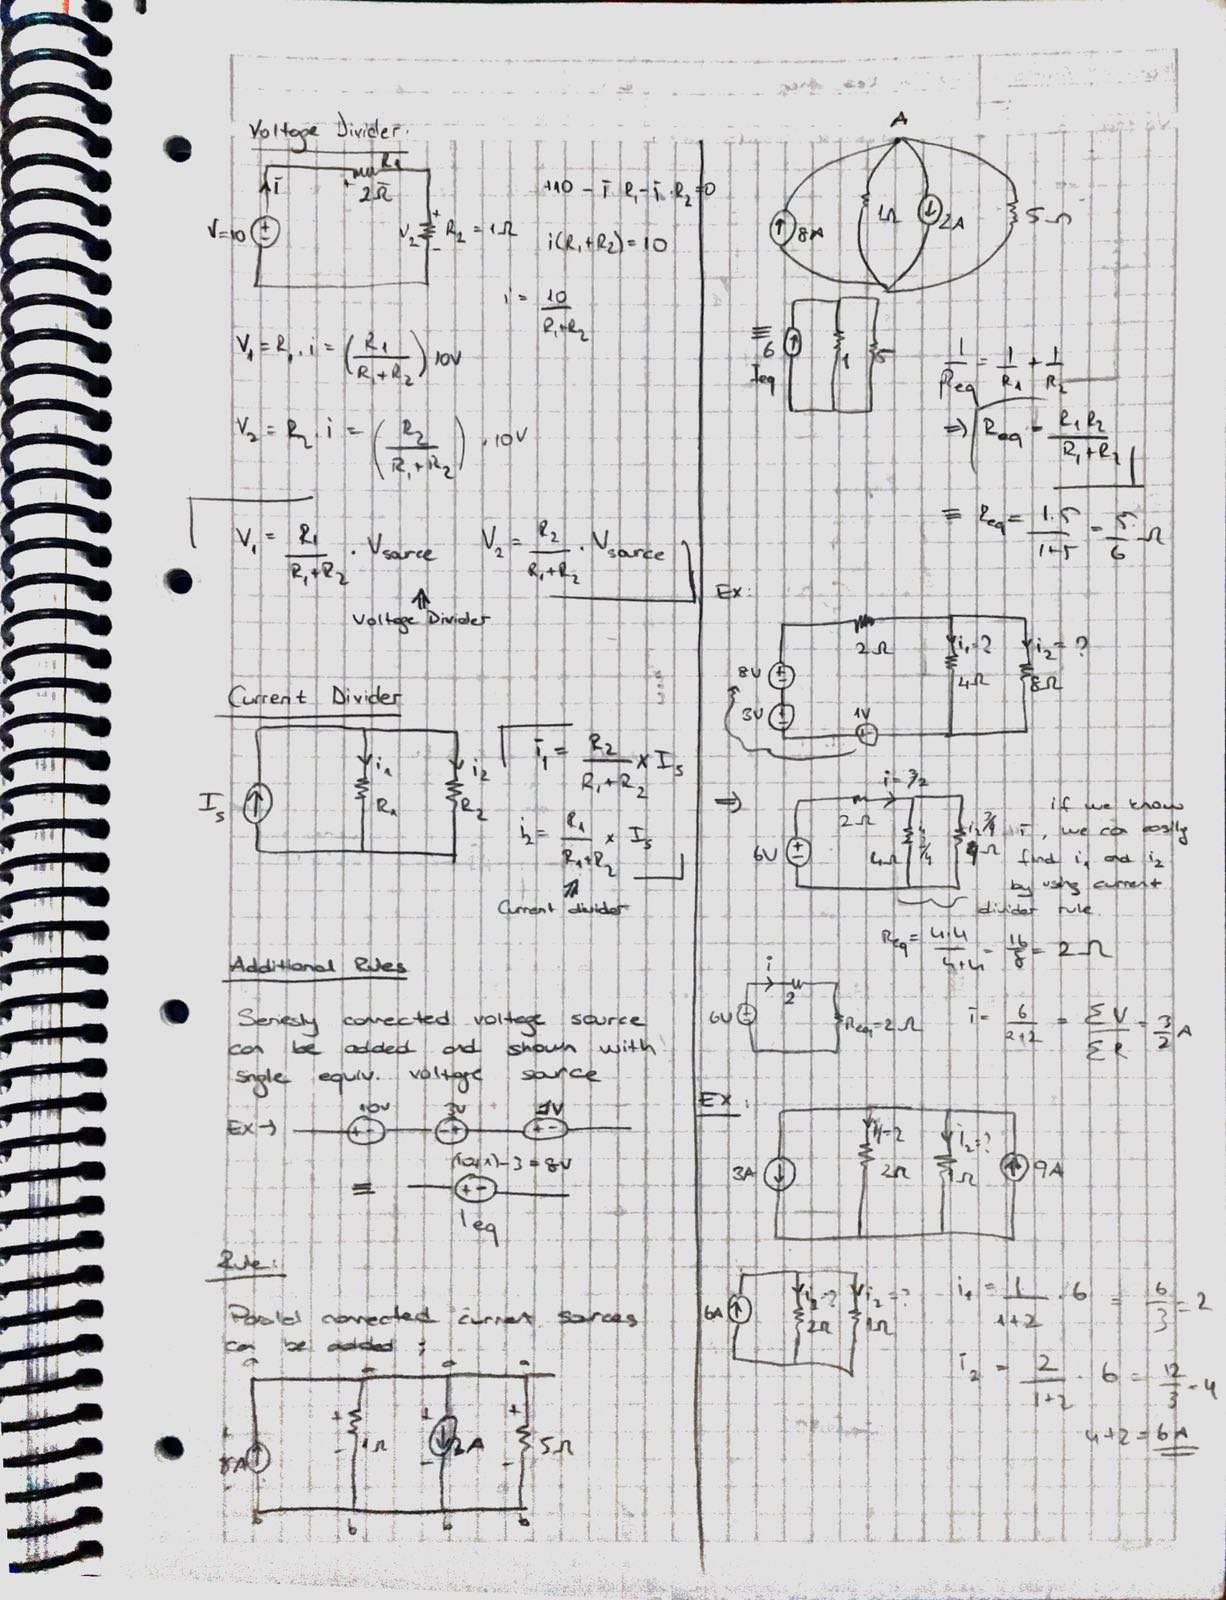 Voltage Divider:
R1
2Ω
i
V=10
V2
R2 = 1Ω
+10 - i R1 - i. R2 = 0
i(R1+R2) = 10
i = 10 / R1+R2
V1 = R1 . i = (R1 / R1+R2) 10V
V2 = R2 . i = (R2 / R1+R2) . 10V
V1 = R1 / R1+R2 . Vsource V2 = R2 / R1+R2 . Vsource
⇑
Voltage Divider
Current Divider
Is
i1
R1
i2
R2
i1 = R2 / R1+R2 x Is
i2 = R1 / R1+R2 x Is
⇑
Current divider
Additional Rules
Seriesly connected voltage source
can be added and shown with
single equiv. voltage source
Ex → 10V 3V 1V
(10+1)-3 = 8V
≡
eq
Rule:
Parallel connected current sources
can be added ;
a a a a
8A 1Ω 2A 5Ω
b b b b
A
8A 1Ω 2A 5Ω
≡
6
Ieq
1 5
1/Req = 1/R1 + 1/R2
⇒ Req = R1 R2 / R1+R2
≡ Req = 1.5 / 1+5 = 5/6 Ω
Ex:
2Ω
8V
3V
1V
i1 = ?
4Ω
i2 = ?
8Ω
⇒
i = 3/2
2Ω
6V
4Ω
3/4
i2 3/4
if we know
i, we can easily
find i1 and i2
by using current
divider rule.
Req = 4.4 / 4+4 = 16/8 = 2Ω
i
2
6V
Req = 2Ω
i = 6 / 2+2 = ΣV / ΣR = 3/2 A
Ex:
3A
i1=?
2Ω
i2=?
1Ω
9A
6A
i1=?
2Ω
i2=?
1Ω
i1 = 1 / 1+2 . 6 = 6/3 = 2
i2 = 2 / 1+2 . 6 = 12/3 = 4
4+2 = 6A